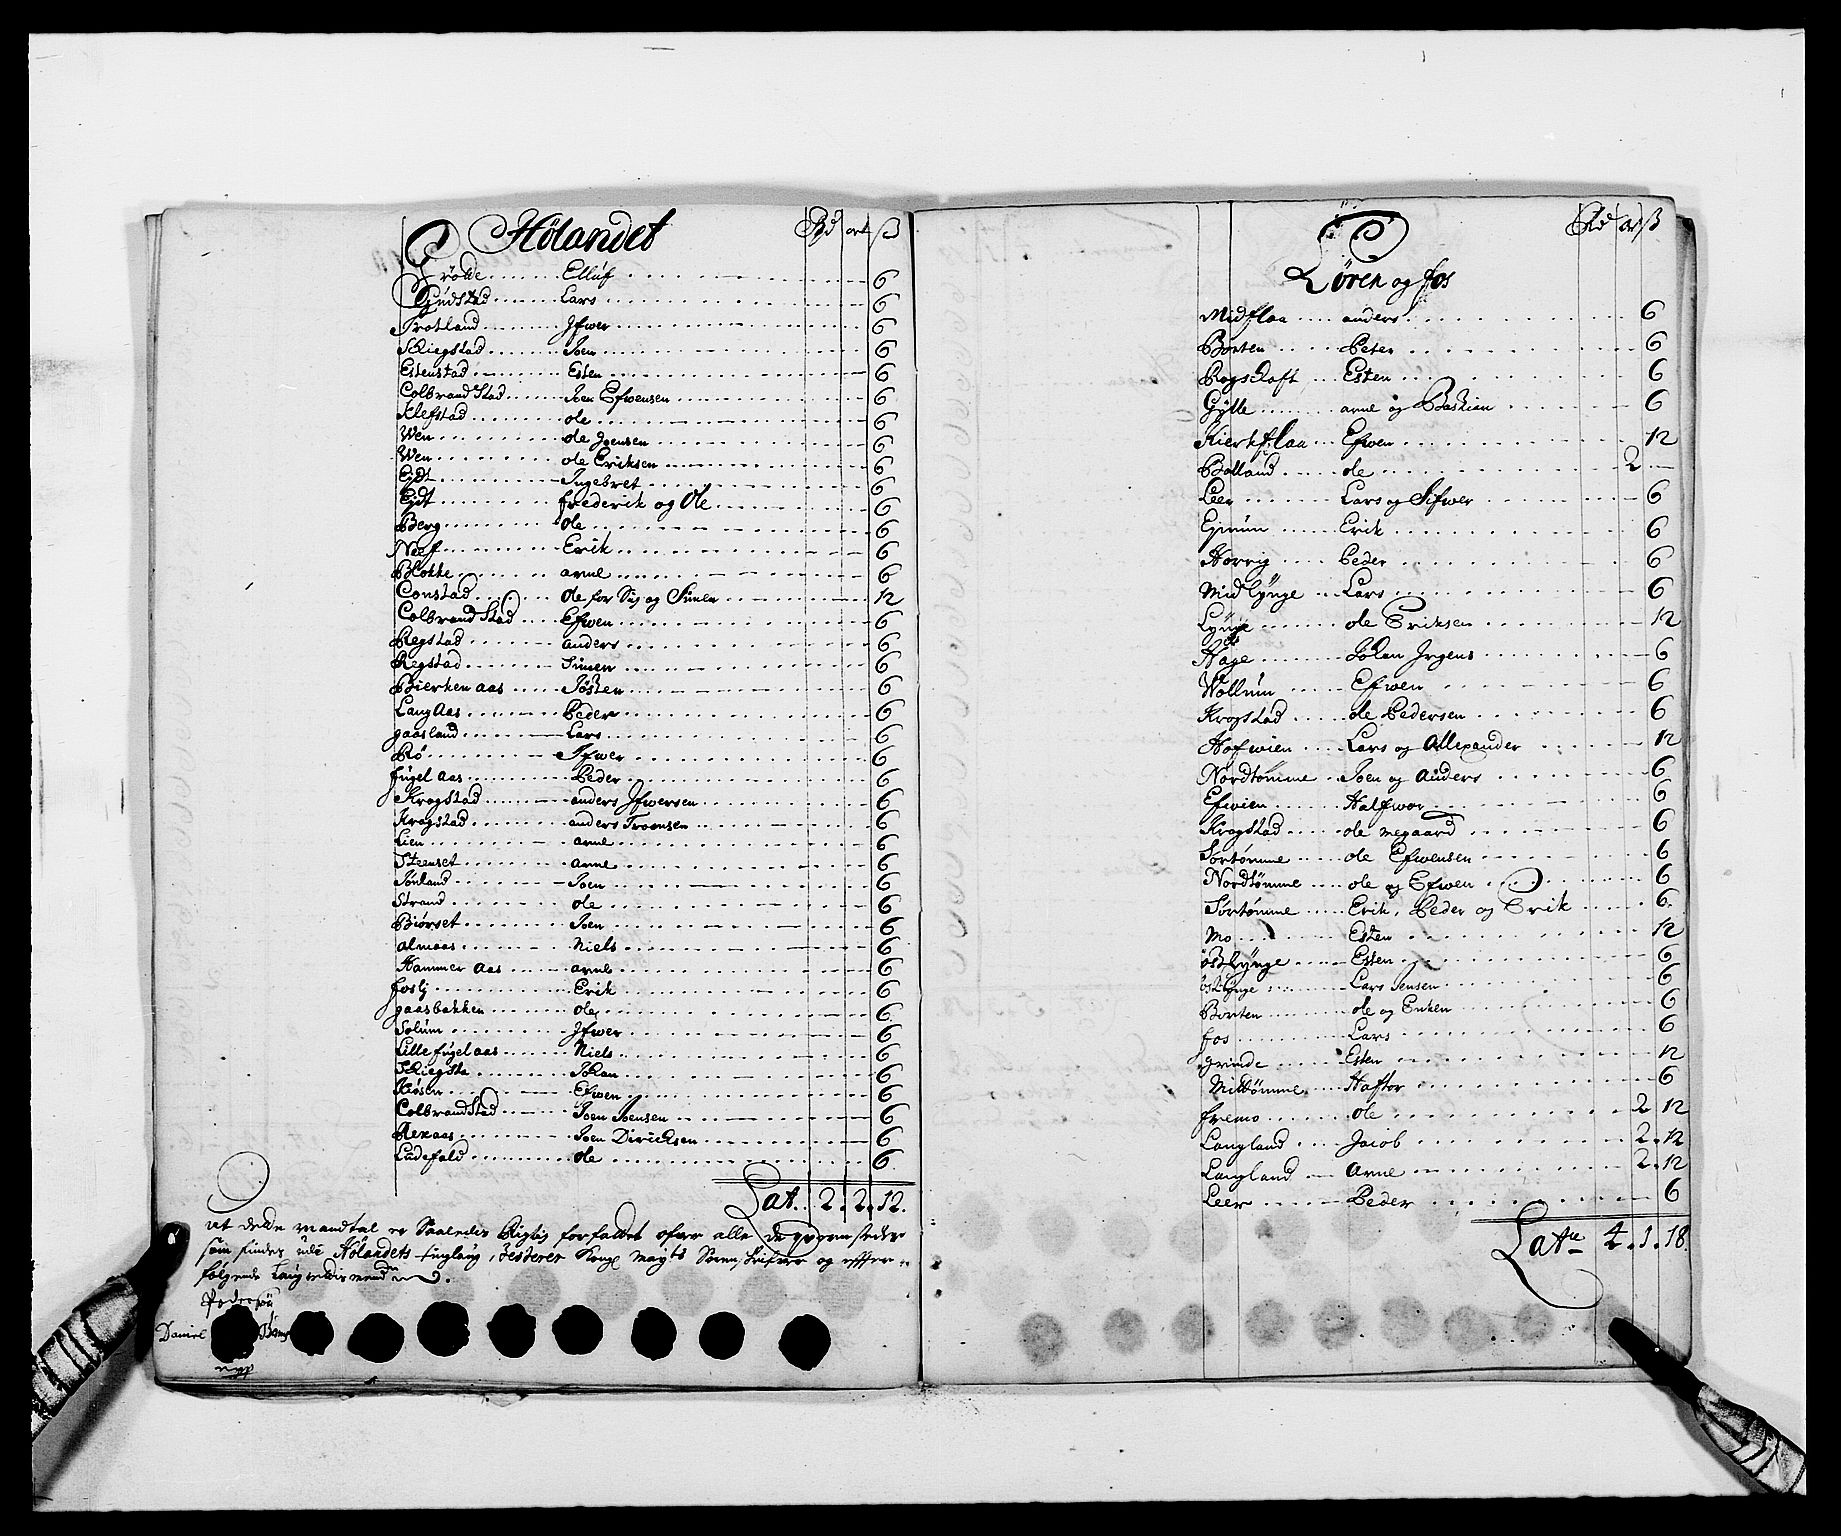 Hölandet Rd ort ß
Gröette Elluf 6
Gudstad Lars 6
Trotland Ifwer 6
Skiegstad Joen 6
Estenstad Esten 6
Colbrand Stad Joen Efwensen 6
Klefstad ole 6
Wen ole Joensen 6
Wen ole Eriksen 6
Eidt Ingebret 6
Eidt frederik og Ole 6
Berg Ole 6
Erik 6
Blokke arne 6
Constad Ole for Sig og Simen 12
Colbrand Stad Efwen 6
Regstad anders 6
Regstad Simen 6
Bierken aas Jösten 6
Lang Aas Peder 6
gaasland Lars 6
Rö Ifwer 6
fugel Aas Peder 6
Krogstad anders Ifwersen 6
Krogstad anders Troensen 6
Lien arne 6
Steenset arne 6
Jonland Joen 6
Strand ole 6
Biörset Joen 6
almaas Niels 6
Hammer Aas arne 6
Foslj Erik 6
gaasbakken ole 6
Solum Ifwer 6
Lille fugel aas Niels 6
Skiegsta Johan 6
Kiösen Efwen 6
Colbrand Stad Joen Joensen 6
Rexaas Joen Diricksen 6
Ladefald ole 6
Lat. 2. 2. 12.
at dette mandtal er Saaledes Rigtig forfattet ofver alle de
som findes udi Hölandets tinglaug, testerer Kongl mayts Sorenskrifver og effter-
fölgende Laugrettismend
Daniel
Rd ort ß
Lören og fos
Midflaa anders 6
Borten Peter 6
Rogstoft Esten 6
Gylle arne og Bastian 6
Kierkflaa Efwen 12
Bolland ole 2
Leer Lars og Sifwer 6
Gimum Erik 6
Horrig Peder 6
Mid Lynge Lars 6
Lynge ole Eriksen 12
Hage Johan Jrgens 6
Wollum Efwen 6
Krogstad ole Pedersen 6
Hofwien Lars og Allexander 12
Nordtömme Joen og Anders 6
Efwien Halfwor 6
Krogstad ole megaard 6
Sortömme ole Efwensen 6
Nordtömme ole og Efwen 6
Sortömme Erik, Peder og Erik 6
Mo Esten 12
östlynge Esten 6
östlynge Lars Jensen 6
Borten ole og Enken 6
fos Lars 6
grinde Esten 12
Mittömme Haftor 6
fremo ole 2 12
Langland Jacob 2. 12
Langland Arne 2. 12
Leer Peder 6
Late 4. 1. 18.